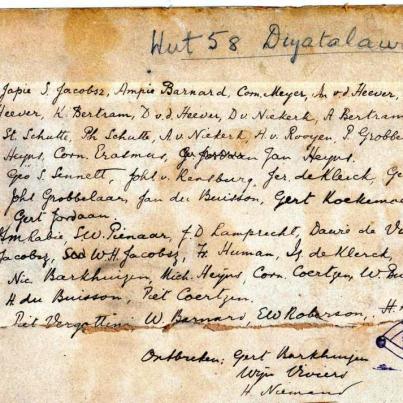 Hut 58 Diyatalawa
Japie S. Jacobsz, Ampie Barnard, Corn. Meyer, v.d. Heever,
Heever, K. Bertram, D v.d. Heever, D v. Niekerk, A Bertram
St. Schutte, Ph Schutte, A v. Niekerk, H.v. Rooyen, P. Grobbe
Heyns, Corn. Erasmus, Jan Heyns.
Geo S. Sennett, Joht v. Rensburg, Jer. de Klerck, Ge
Joht Grobbelaar, Jan du Buisson, Gert Koekemoe
Gert Jordaan.
Rabie, S.W. Pienaar, J. D Lamprecht, Dawie de Vi
Jacobsz, W.H. Jacobsz, Fr. Human, Is. de Klerck,
Nic Barkhuizen, Mich. Heyns, Corn. Coertzen, W. Du
H du Buisson, Piet Coertzen.
Piet Vergottini W. Barnard, E W Roberson, H.
Ontbreken: Gert Barkhuizen
Wijn Viviers
H Niemand